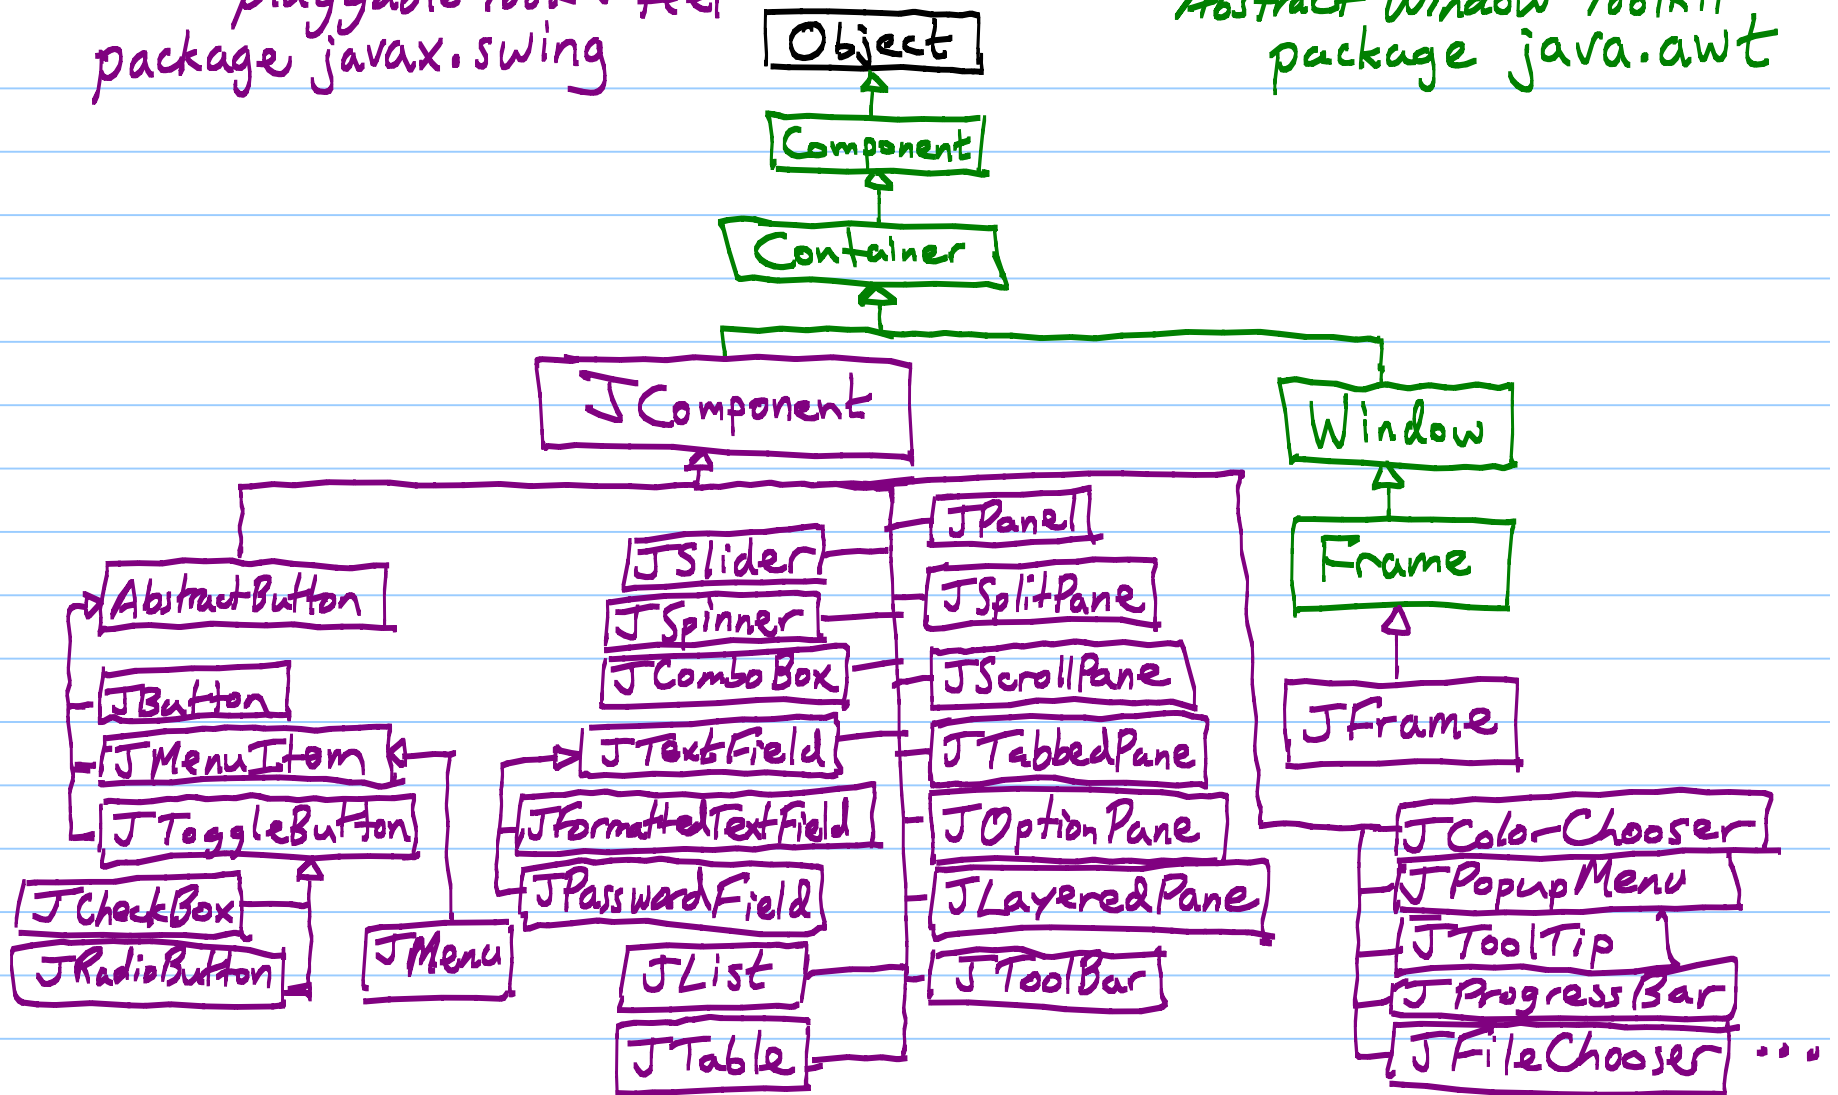 pluggable look + feel
package javax.swing
Abstract Window Toolkit
package java.awt
Object
Component
Container
JComponent
Window
Frame
JFrame
AbstractButton
JButton
JMenuItem
JToggleButton
JCheckBox
JRadioButton
JMenu
JSlider
JSpinner
JComboBox
JTextField
JFormattedTextField
JPasswordField
JList
JTable
JPanel
JSplitPane
JScrollPane
JTabbedPane
JOptionPane
JLayeredPane
JToolBar
JColorChooser
JPopupMenu
JToolTip
JProgressBar
JFileChooser ...